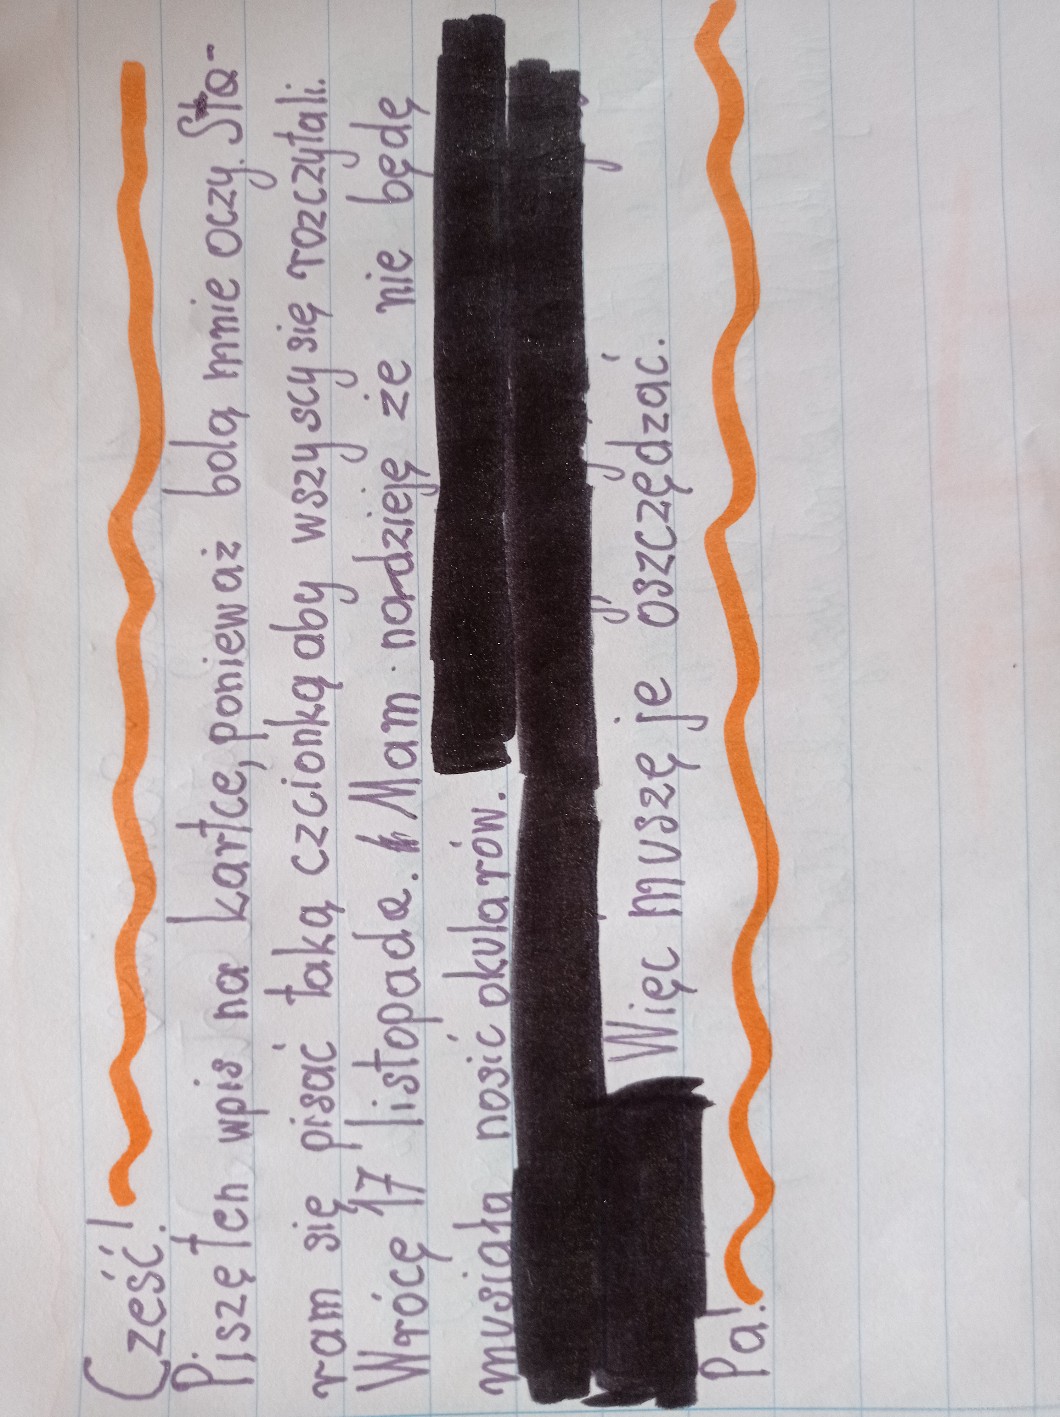 Cześć!
Piszę ten wpis na kartce, ponieważ bolą mnie oczy. Sta-
ram się pisać taką czcionką aby wszyscy się rozczytali.
Wrócę 17 listopada. Mam nadzieję że nie będę
musiała nosić okularów.
Więc muszę je oszczędzać.
Pa!